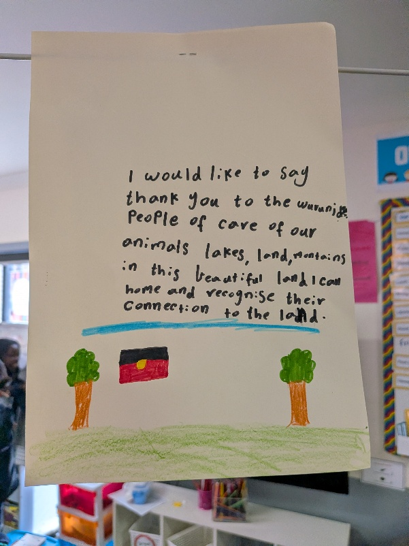 I would like to say
thank you to the wurunjge
People of care of our
animals lakes, land, montains
in this beautiful land I call
home and recognise their
Connection to the land.